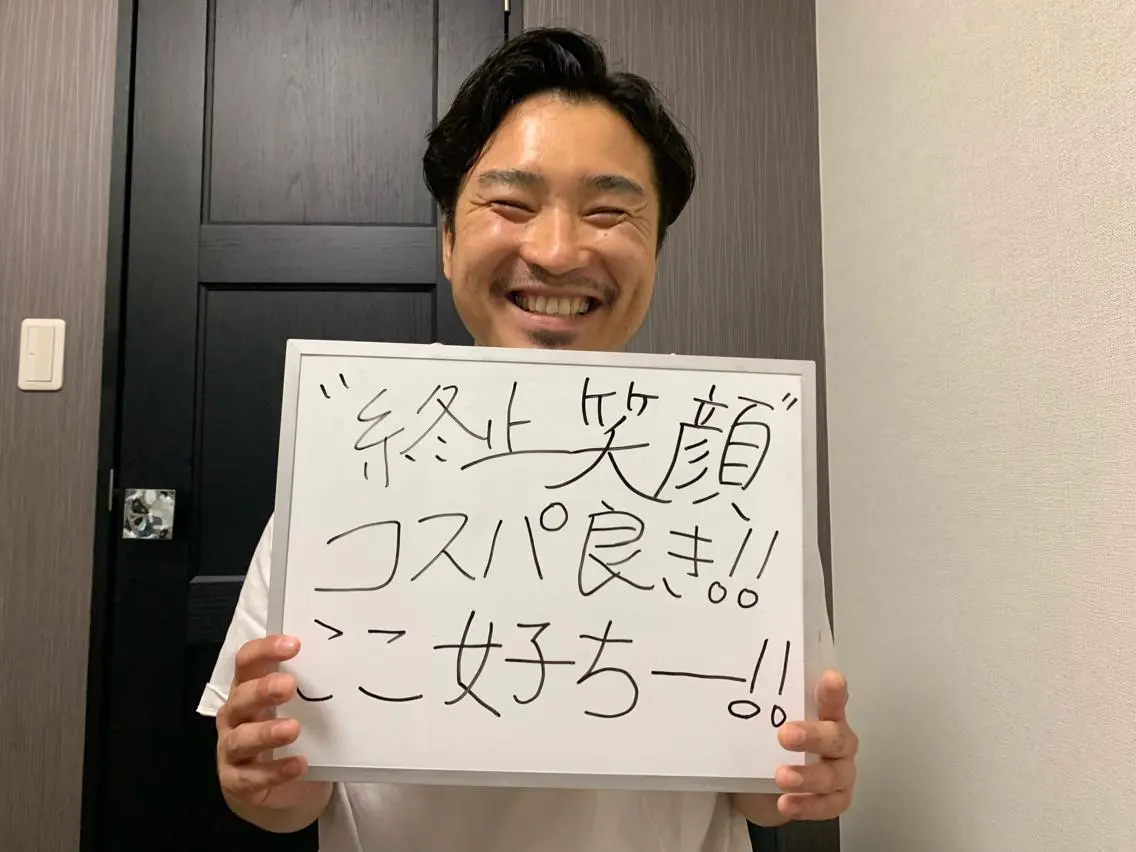 "終止笑顔"
コスパ良き!!
ここ好ちー!!